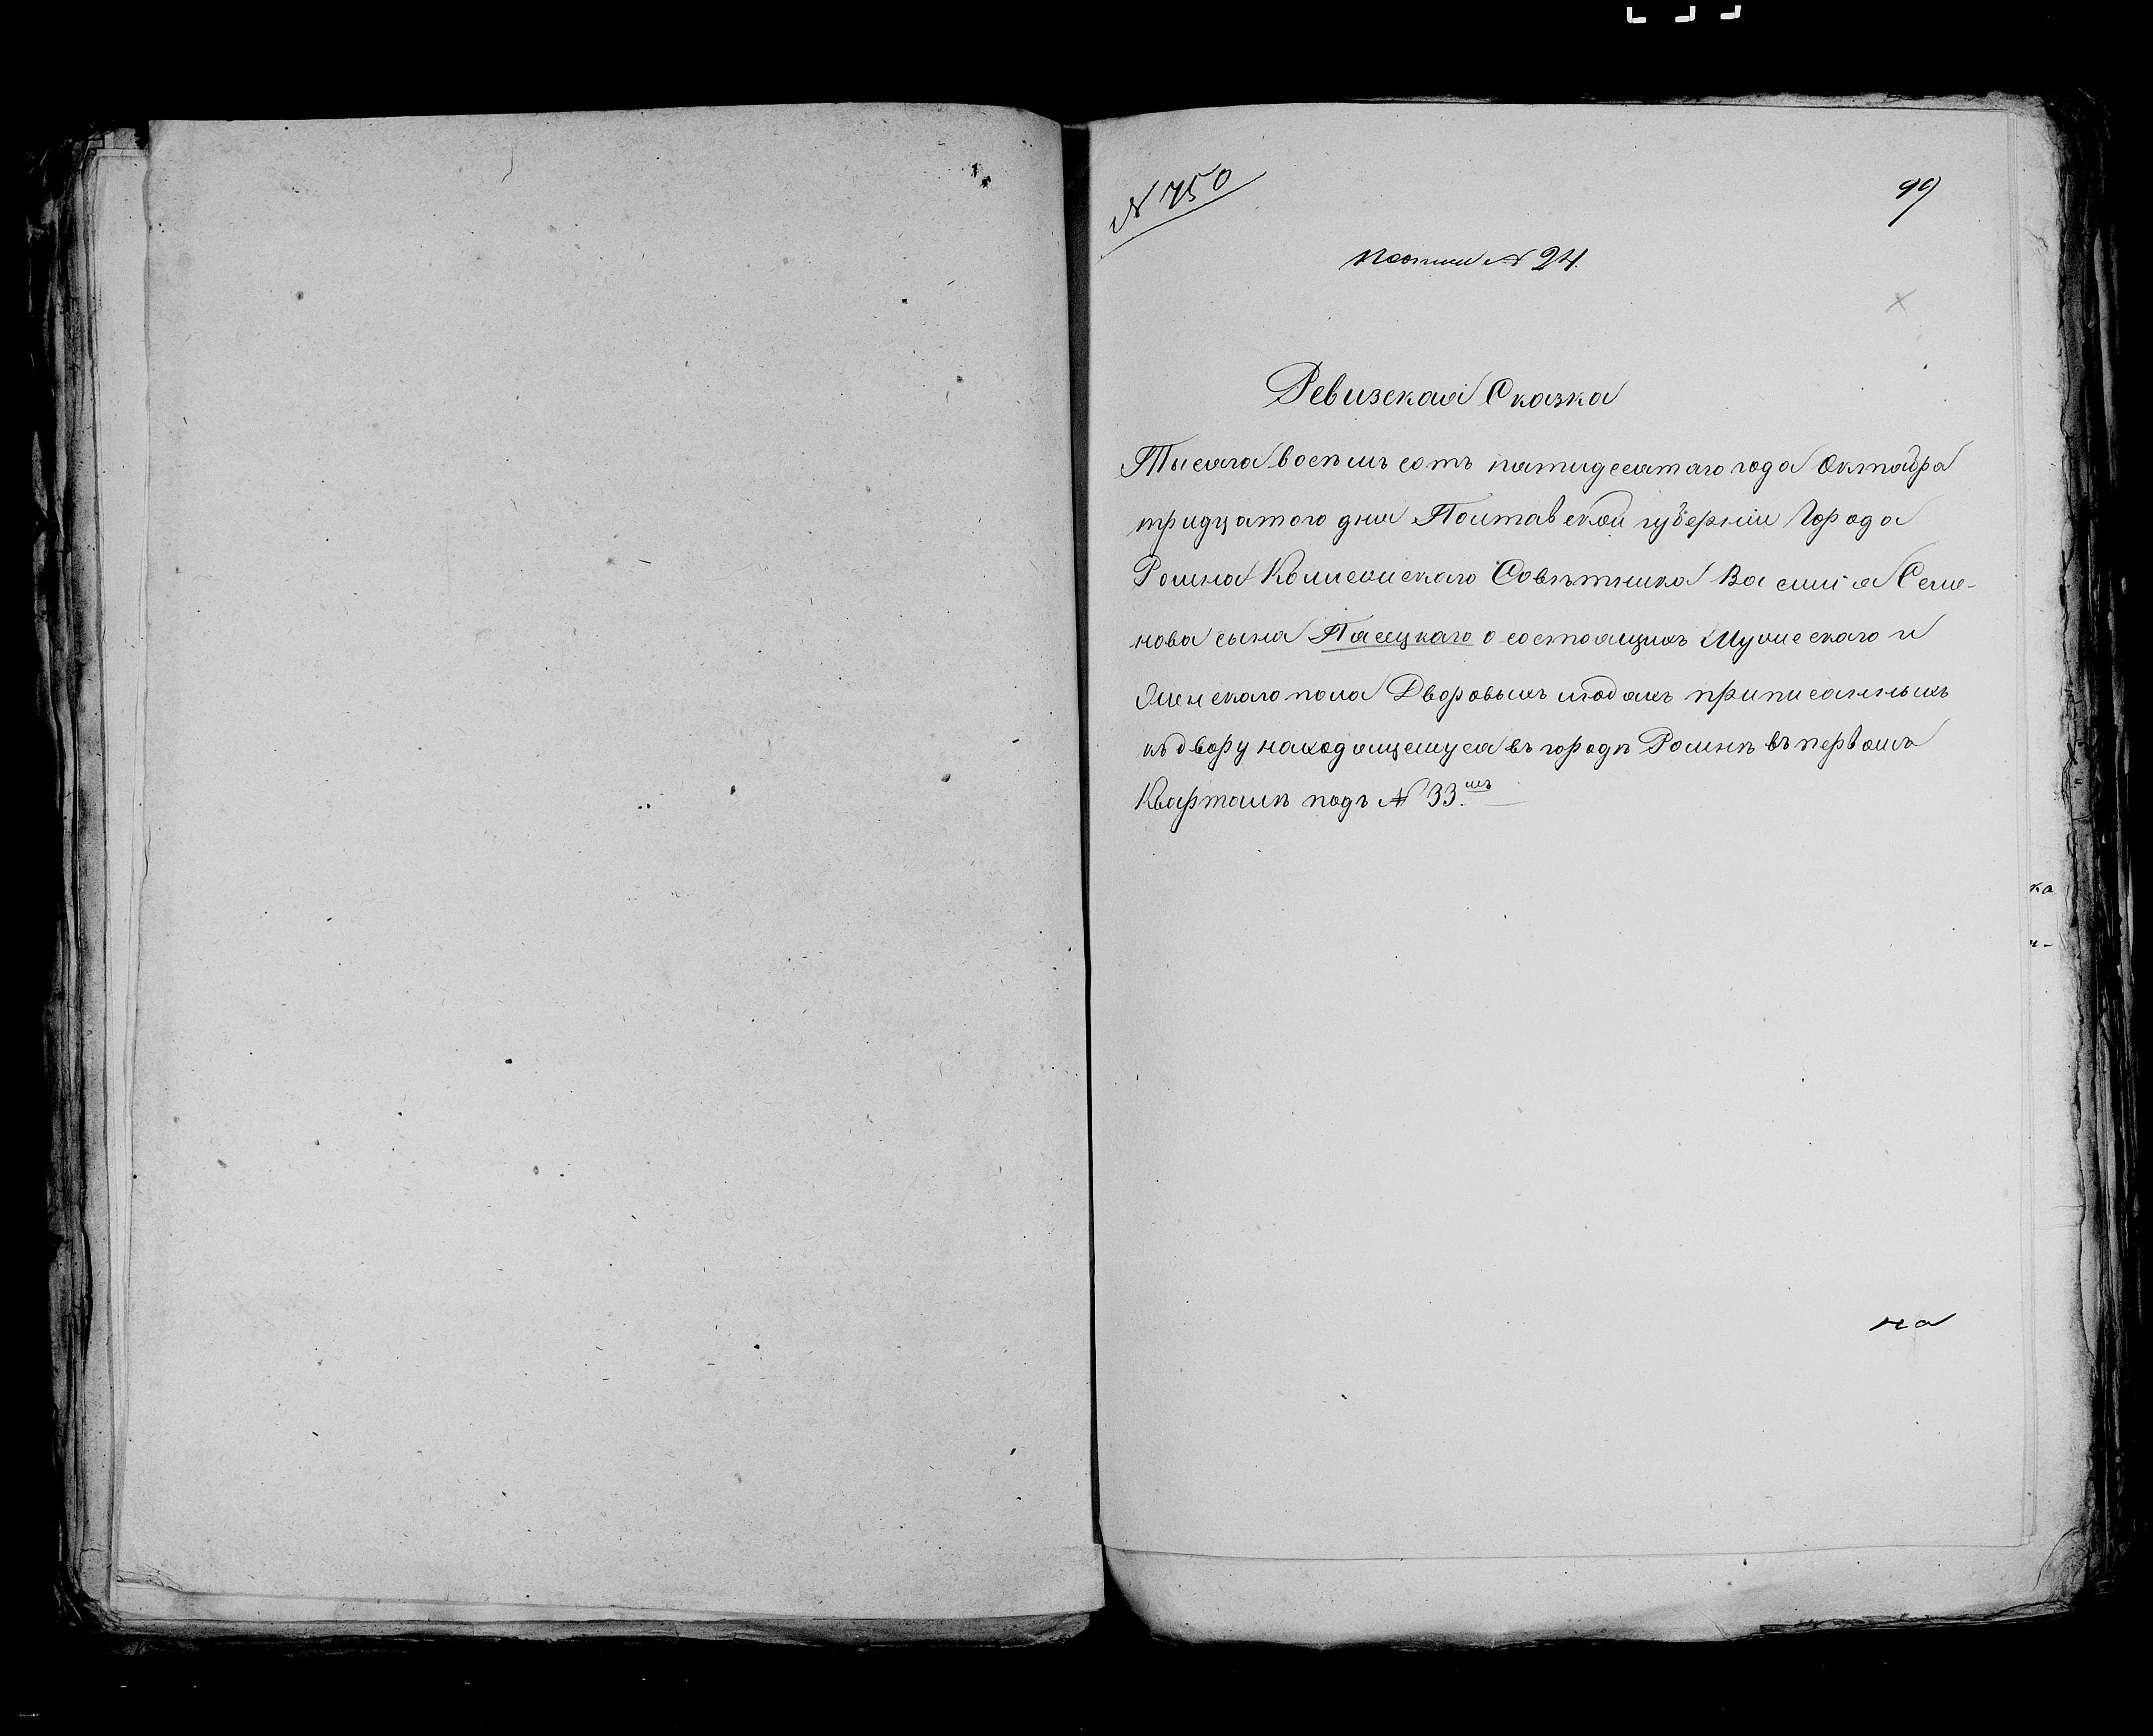 N 750
99
почтии N 24.
Ревизская Сказка
Тысяча восемь сотъ пятидесятаго года Октября
тридцатого дня Полтавской губерніи Города
Ромна Коллежскаго Совѣтника Василія Семе-
нова сына Пасецкаго о состоящихъ Мужескаго и
Женскаго пола Дворовыхъ людяхъ приписанныхъ
къ двору находящемуся въ городѣ Ромнѣ въ первомъ
Кварталѣ подъ N 33.мъ
ка
н-
на